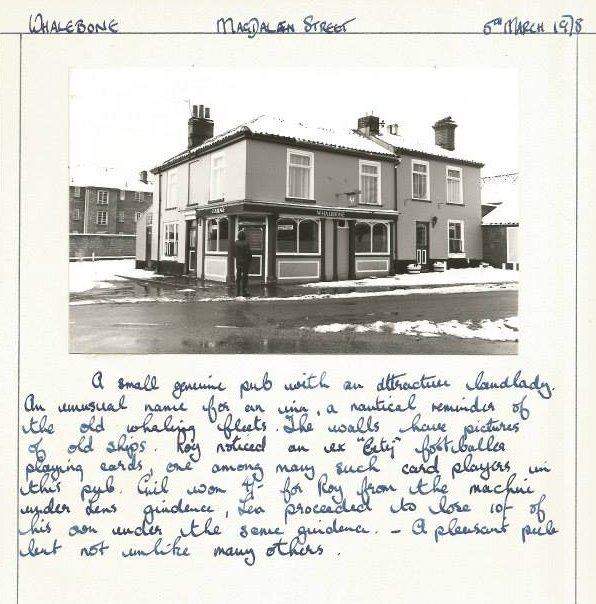 WHALEBONE MAGDALEN STREET 5TH MARCH 1978
WHALEBONE
A small genuine pub with an attractive landlady.
An unusual name for an inn, a nautical reminder of
the old whaling fleets. The walls have pictures
of old ships. Roy noticed an ex "City" footballer
playing cards, one among many such card players in
this pub. Gil won 4/- for Roy from the machine
under Lens guidence, Len proceeded to lose 10/- of
his own under the same guidence. - A pleasant pub
but not unlike many others.